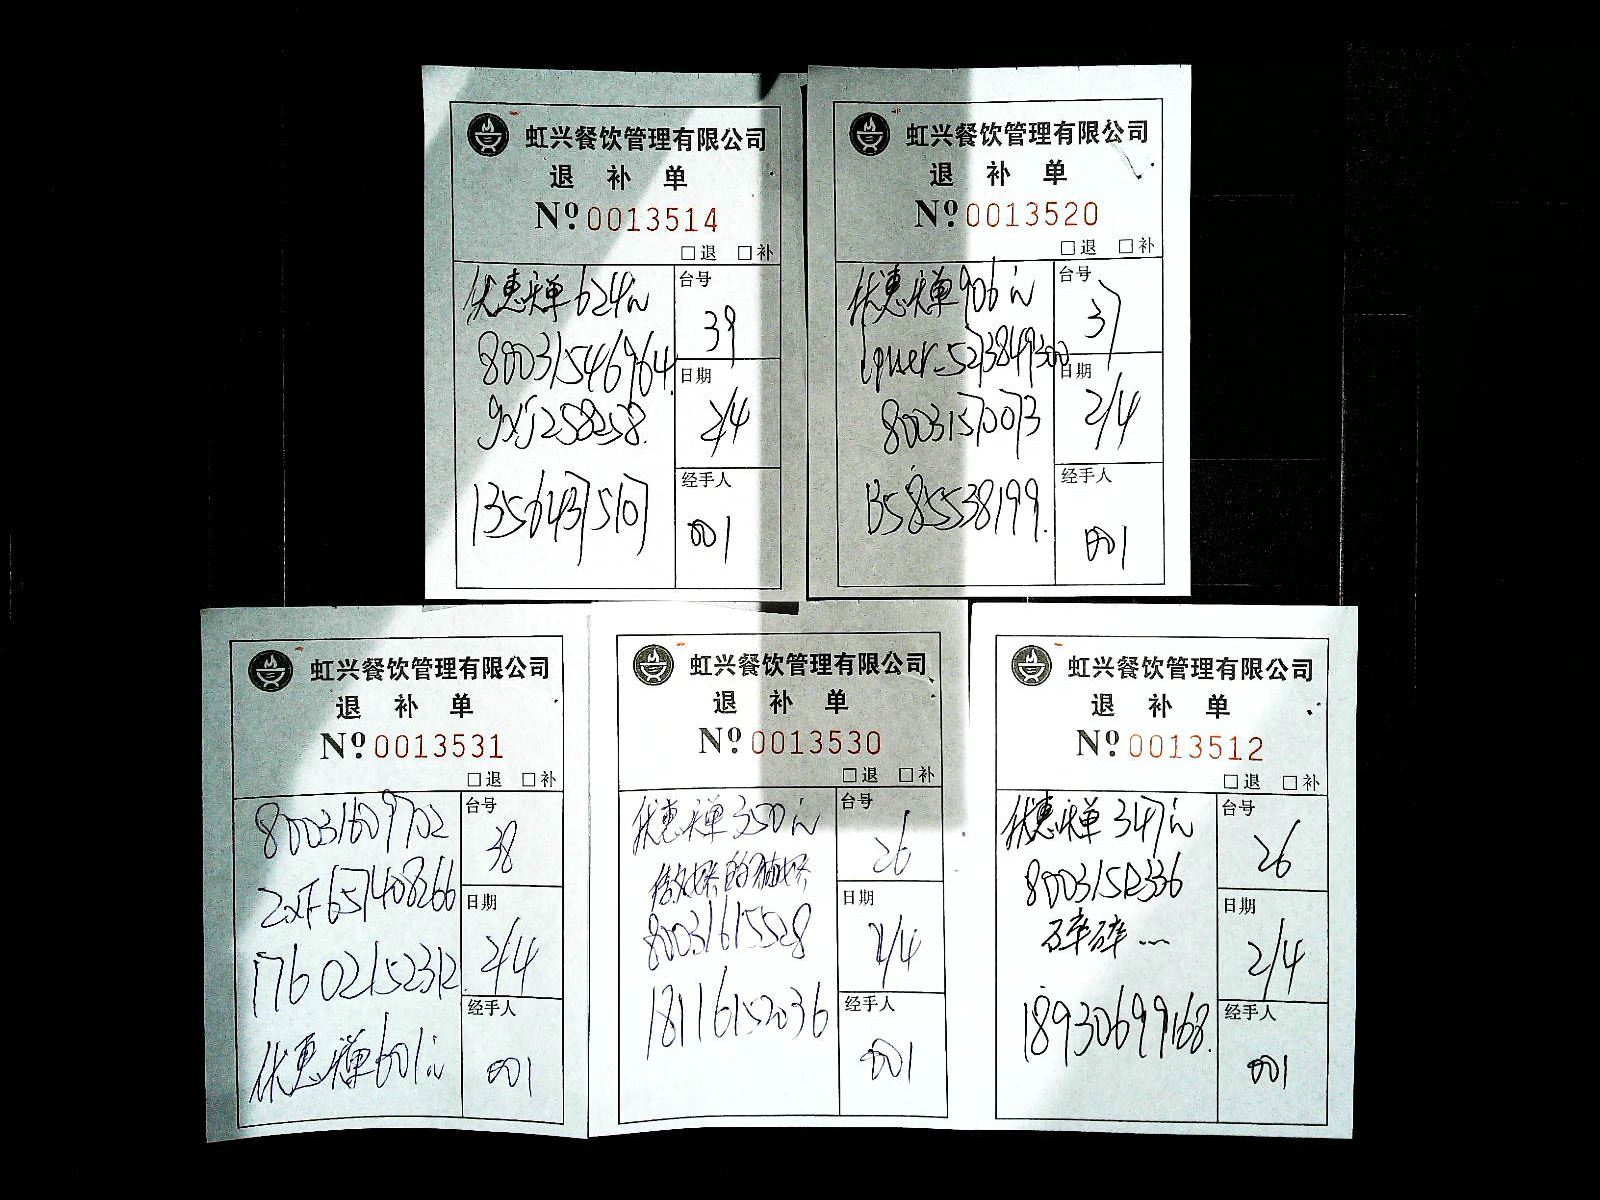 虹兴餐饮管理有限公司
退 补 单
Nº 0013514
□退 □补
优惠买单624元
台号
39
80031546964
日期
2/4
gxj258258.
13564375107
经手人
001
虹兴餐饮管理有限公司
退 补 单
Nº 0013520
□退 □补
优惠买单906元
台号
37
5273849300
日期
2/4
80031570073
13585538199.
经手人
001
虹兴餐饮管理有限公司
退 补 单
Nº 0013531
□退 □补
80031609702
台号
38
zxF657408266
日期
2/4
17602152312
经手人
001
优惠买单601元
虹兴餐饮管理有限公司
退 补 单
Nº 0013530
□退 □补
优惠买单350元
台号
26
80031615528
日期
2/4
18116152036
经手人
001
虹兴餐饮管理有限公司
退 补 单
Nº 0013512
□退 □补
优惠买单347元
台号
26
80031512336
碎碎...
日期
2/4
18930699168.
经手人
001